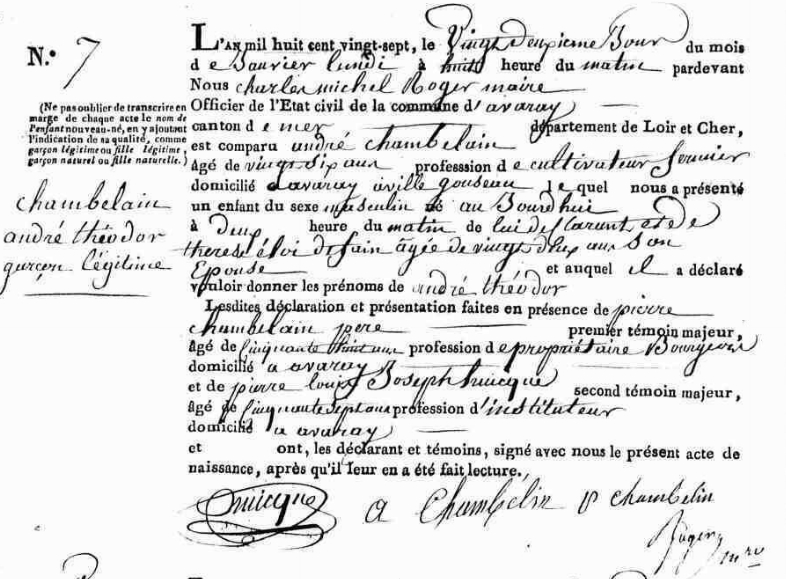 N.° 7
(Ne pas oublier de transcrire en
marge de chaque acte le nom de
l'enfant nouveau-né, en y ajoutant
l'indication de sa qualité, comme
garçon légitime ou fille légitime,
garçon naturel ou fille naturelle.)
chambelain
andré théodor
garçon légitime
L'AN mil huit cent vingt-sept, le Vingt Deuxieme Jour du mois
d e Janvier lundi à huit heure du matin pardevant
Nous charles michel Roger maire
Officier de l'Etat civil de la commune d'avaray
canton d e mer département de Loir et Cher,
est comparu andré chambelain
âgé de vingt six ans profession d e cultivateur fermier
domicilié davaray aville gouseau le quel nous a présenté
un enfant du sexe masculin né au Jourdhui
à deux heure du matin de lui declarant et de
therese éloi defain agée de vingt deux ans Son
Epouse et auquel il a déclaré
vouloir donner les prénoms de andré théodor
Lesdites déclaration et présentation faites en présence de pierre
chambelain pere premier témoin majeur,
âgé de Cinquante huit ans profession d e propriétaire Bourgeois
domicilié a avaray
et de pierre louis Joseph second témoin majeur,
âgé de Cinquante sept ans profession d'instituteur
domicilié a avaray
et ont, les déclarant et témoins, signé avec nous le présent acte de
naissance, après qu'il leur en a été fait lecture.
a Chambelin p chambelin
Roger mre